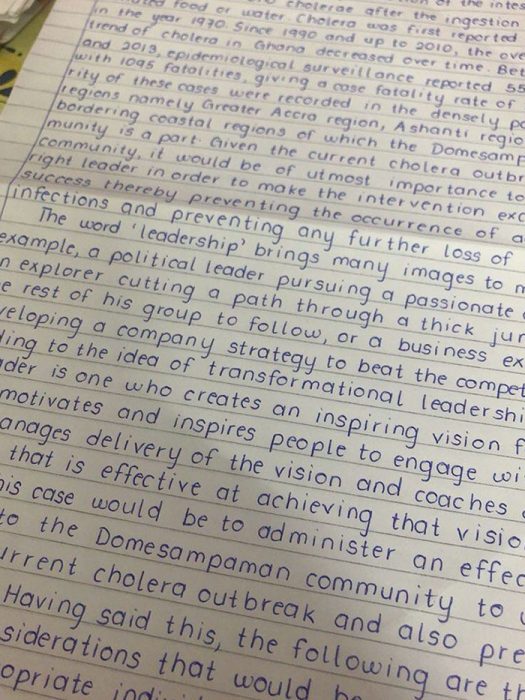 of the intes
food or water. Cholera was first reported
cholerae after the ingestion
in the year 1970. Since 1990 and up to 2010, the ove
trend of cholera in Ghana decreased over time. Bet
and 2013, epidemiological surveillance reported 55
with 1095 fatalities, giving a case fatality rate of
rity of these cases were recorded in the densely po
regions namely Greater Accra region, Ashanti regio
bordering coastal regions of which the Domesamp
munity is a part. Given the current cholera outbr
community, it would be of utmost importance to
right leader in order to make the intervention exe
success thereby preventing the occurrence of a
infections and preventing any further loss of
The word 'leadership' brings many images to m
example, a political leader pursuing a passionate
n explorer cutting a path through a thick jun
e rest of his group to follow, or a business ex
veloping a company strategy to beat the compet
ding to the idea of transformational leadershi
der is one who creates an inspiring vision f
motivates and inspires people to engage wi
anages delivery of the vision and coaches
that is effective at achieving that visio
is case would be to administer an effec
to the Domesampaman community to
urrent cholera outbreak and also pre
Having said this, the following are th
siderations that would be
opriate